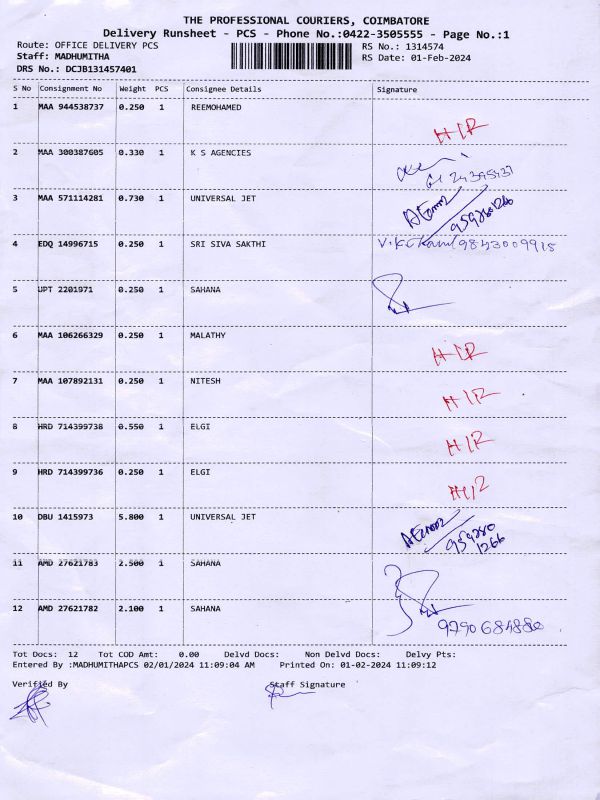 THE PROFESSIONAL COURIERS, COIMBATORE
Delivery Runsheet - PCS - Phone No.:0422-3505555 - Page No.:1
Route: OFFICE DELIVERY PCS RS No.: 1314574
Staff: MADHUMITHA RS Date: 01-Feb-2024
DRS No.: DCJB131457401
S No Consignment No Weight PCS Consignee Details Signature
1 MAA 944538737 0.250 1 REEMOHAMED
HIR
2 MAA 300387605 0.330 1 K S AGENCIES
3 MAA 571114281 0.730 1 UNIVERSAL JET
4 EDQ 14996715 0.250 1 SRI SIVA SAKTHI 9843009915
5 UPT 2201971 0.250 1 SAHANA
6 MAA 106266329 0.250 1 MALATHY
HIR
7 MAA 107892131 0.250 1 NITESH
HIR
8 HRD 714399738 0.550 1 ELGI
HIR
9 HRD 714399736 0.250 1 ELGI
HIR
10 DBU 1415973 5.800 1 UNIVERSAL JET
959280
1266
11 AMD 27621783 2.500 1 SAHANA
12 AMD 27621782 2.100 1 SAHANA
9790684880
Tot Docs: 12 Tot COD Amt: 0.00 Delvd Docs: Non Delvd Docs: Delvy Pts:
Entered By :MADHUMITHAPCS 02/01/2024 11:09:04 AM Printed On: 01-02-2024 11:09:12
Verified By Staff Signature